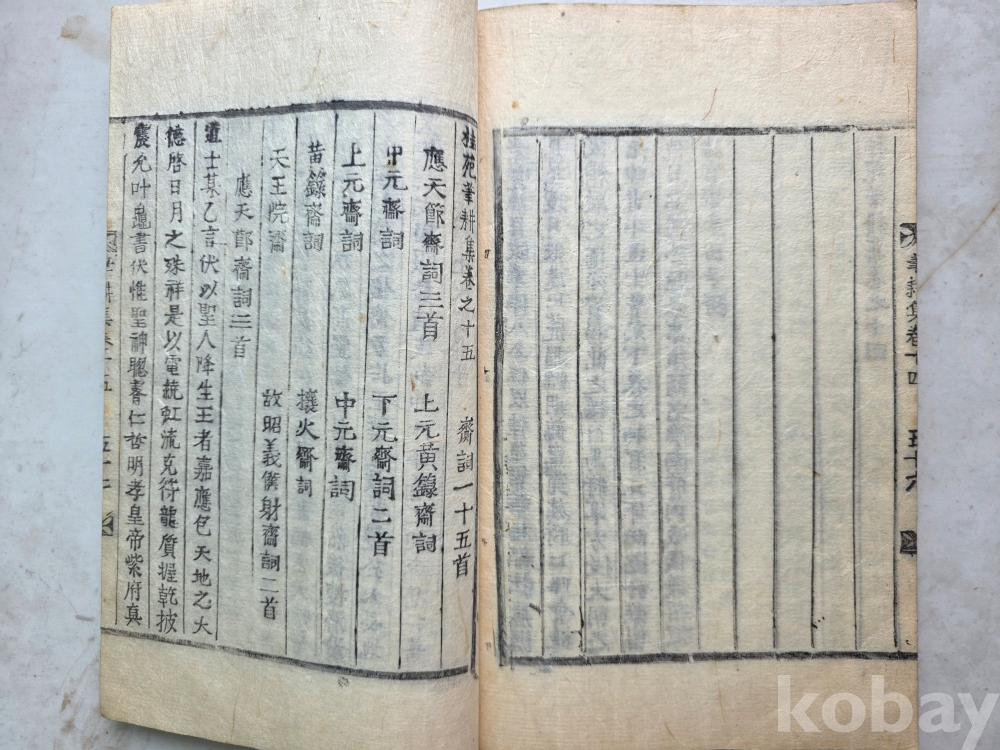 筆耕集卷十四
五十六
桂苑筆耕集卷之十五 齋詞一十五首
應天節齋詞三首 上元黃籙齋詞
中元齋詞 下元齋詞二首
上元齋詞 中元齋詞
黃籙齋詞 禳火齋詞
天王院齋 故昭義僕射齋詞二首
應天節齋詞三首
道士某乙言伏以聖人降生王者嘉應包天地之大
德啓日月之殊祥是以電繞虹流克符龍質握乾披
震允叶龜書伏惟聖神聰睿仁哲明孝皇帝紫府真
耕集卷十五
kobay